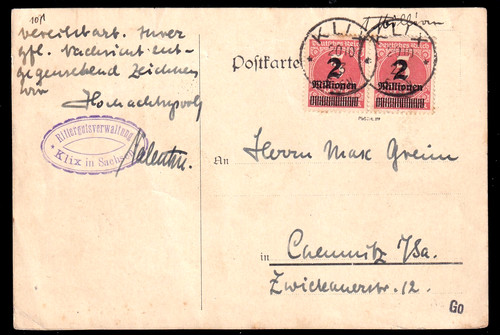 10/1
vereinbart. Ihrer
gfl. Nachricht ent-
gegensehend zeichnen
wir
Hochachtungsvoll
Rittergutsverwaltung
Klix in Sachsen
Valentin.
Postkarte
KLIX
KLIX
Deutsches Reich
Deutsches Reich
2
Millionen
2
Millionen
An
Herrn Max Greim
in
Chemnitz i/Sa.
Zwickauerstr. 12.
Go